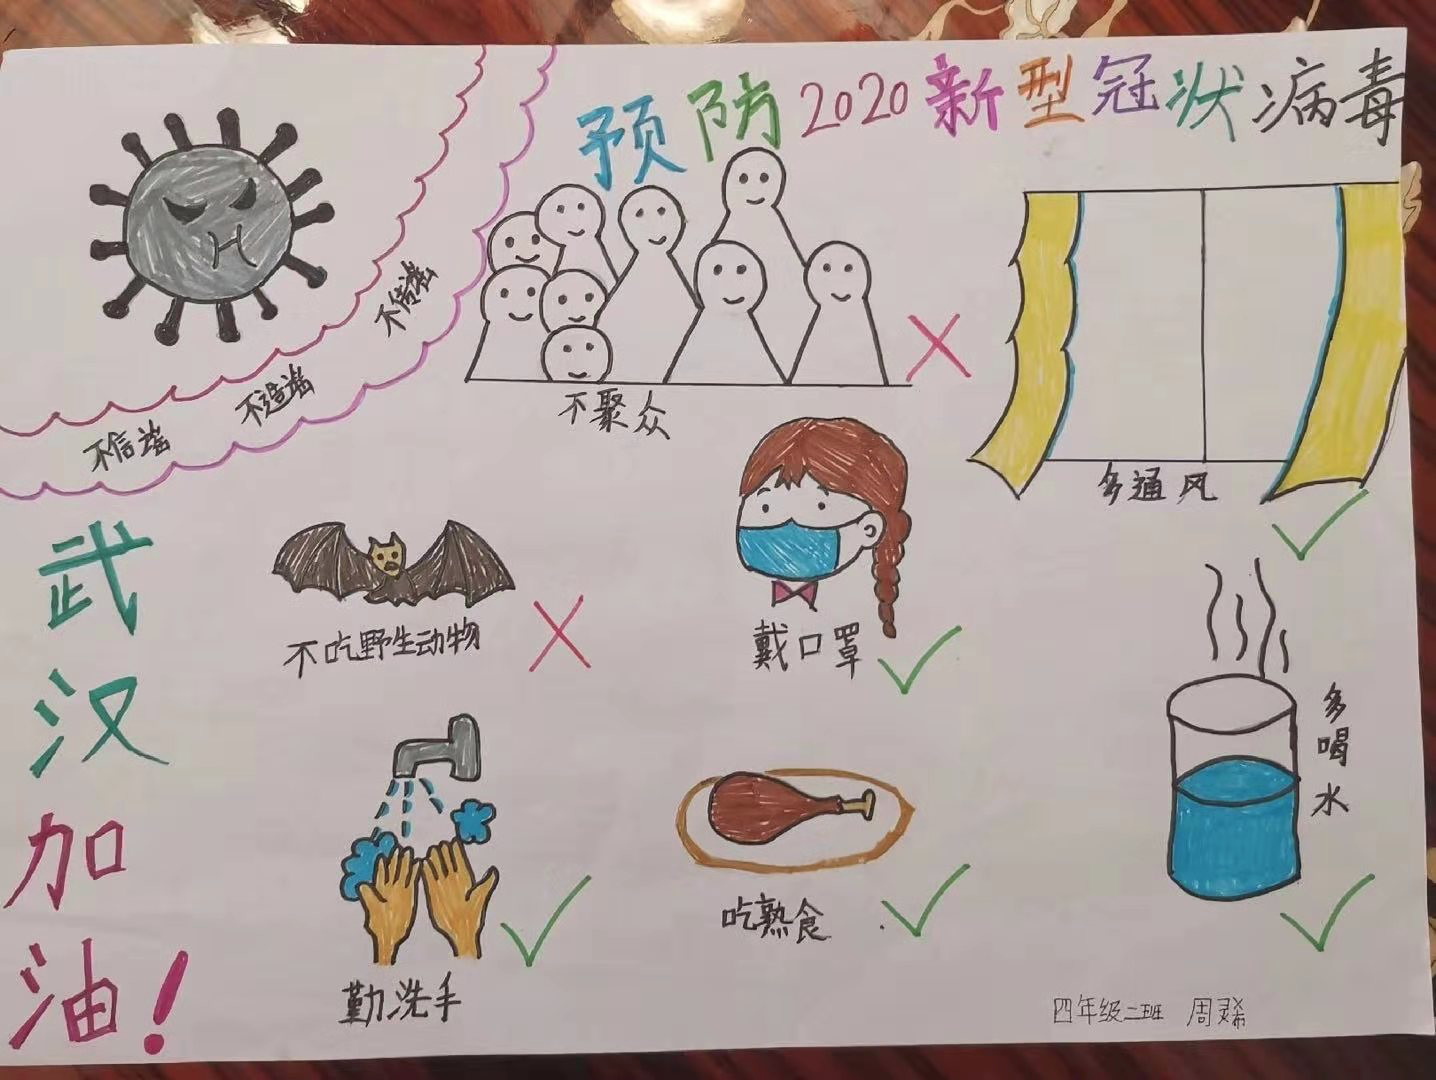 预防2020新型冠状病毒
不传谣
不造谣
不信谣
不聚众
多通风
武汉加油!
不吃野生动物
戴口罩
多喝水
勤洗手
吃熟食
四年级二班 周